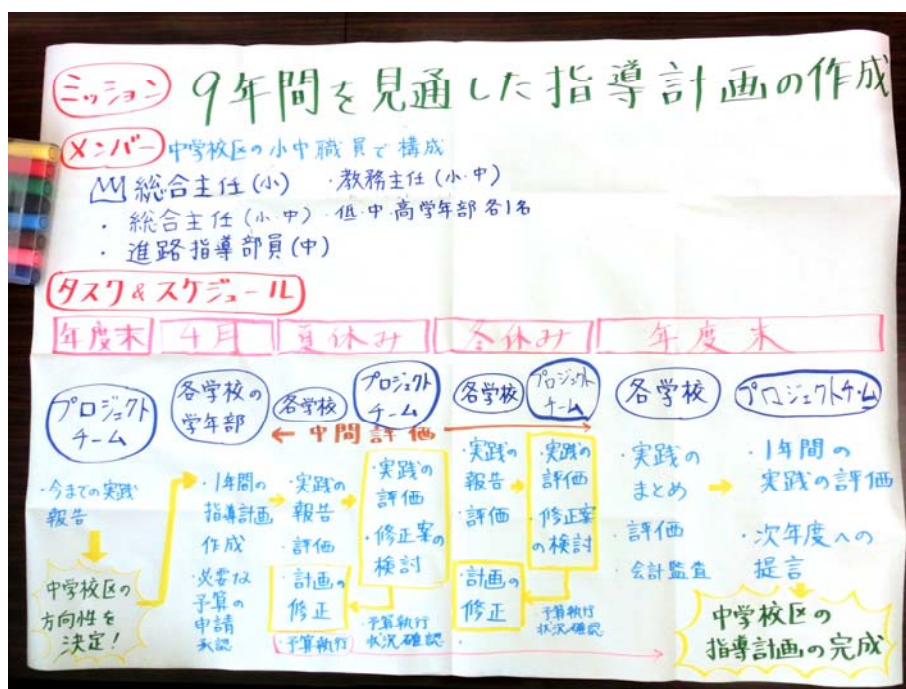 ミッション 9年間を見通した指導計画の作成
メンバー 中学校区の小中職員で構成
総合主任(小) ・教務主任(小・中)
・総合主任(小・中)・低・中・高学年部 各1名
・進路指導部員(中)
タスク&スケジュール
年度末 4月 夏休み 冬休み 年度末
プロジェクト
チーム
・今までの実践
報告
中学校区の
方向性を
決定!
各学校の
学年部
・1年間の
指導計画
作成
・必要な
予算の
申請
承認
← 中間評価 →
各学校
・実践の
報告
・評価
・計画の
修正
・予算執行
プロジェクト
チーム
・実践の
評価
・修正案の
検討
・予算執行
状況確認
各学校
・実践の
報告
・評価
・計画の
修正
プロジェクト
チーム
・実践の
評価
・修正案
の検討
・予算執行
状況確認
各学校
・実践の
まとめ
・評価
・会計監査
プロジェクトチーム
・1年間の
実践の評価
・次年度への
提言
中学校区の
指導計画の完成